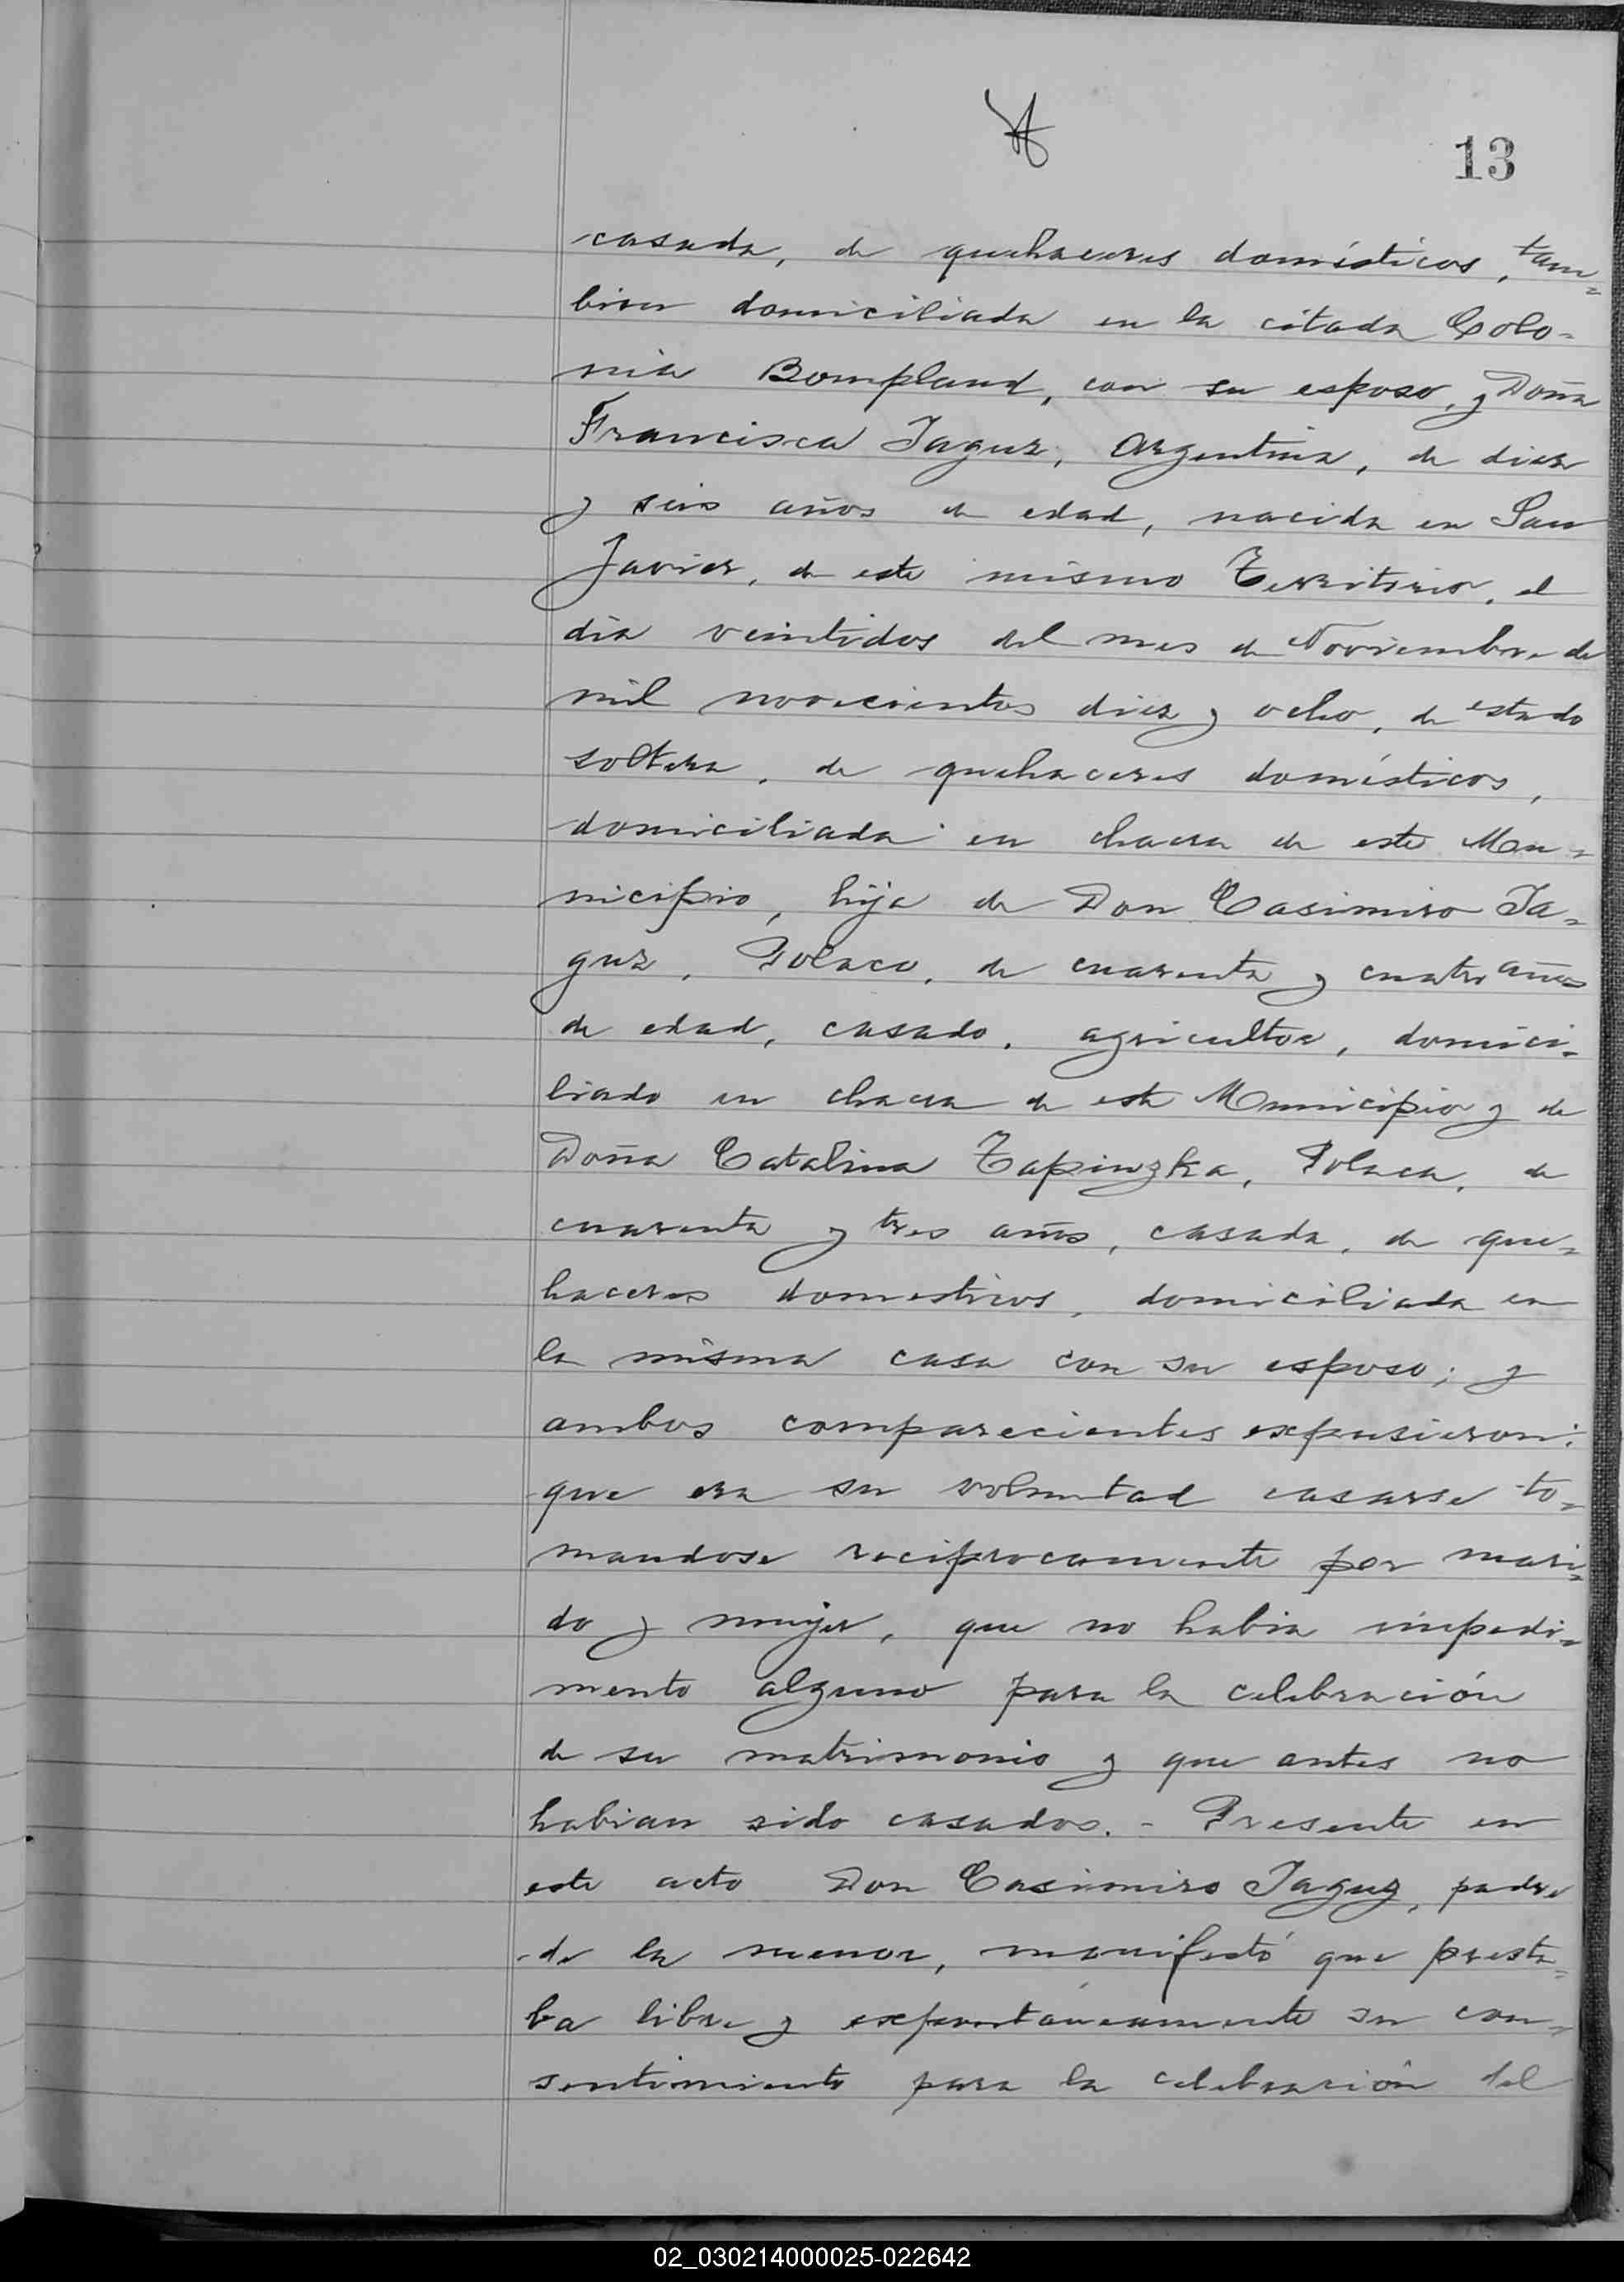 13
casada, de quehaceres domésticos, tam=
bien domiciliada en la citada Colo=
nia Bompland, con su esposo, y Doña
Francisca Jaguz, Argentina, de diez
y seis años de edad, nacida en San
Javier, de este mismo Territorio, el
día veintidos del mes de Noviembre de
mil novecientos diez y ocho, de estado
soltera, de quehaceres domésticos,
domiciliada en chacra de este Mu=
nicipio, hija de Don Casimiro Ja=
guz, Polaco, de cuarenta y cuatro años
de edad, casado, agricultor, domici=
liado en chacra de este Municipio y de
Doña Catalina Tapinzka, Polaca, de
cuarenta y tres años, casada, de que=
haceres domesticos, domiciliada en
la misma casa con su esposo; y
ambos comparecientes expusieron:
que era su voluntad casarse to=
mandose reciprocamente por mari=
do y mujer, que no habia impedi=
mento alguno para la celebración
de su matrimonio y que antes no
habian sido casados. - Presente en
este acto Don Casimiro Jaguz, padre
de la menor, manifestó que presta=
ba libre y expontáneamente su con=
sentimiento para la celebración del
02_030214000025-022642